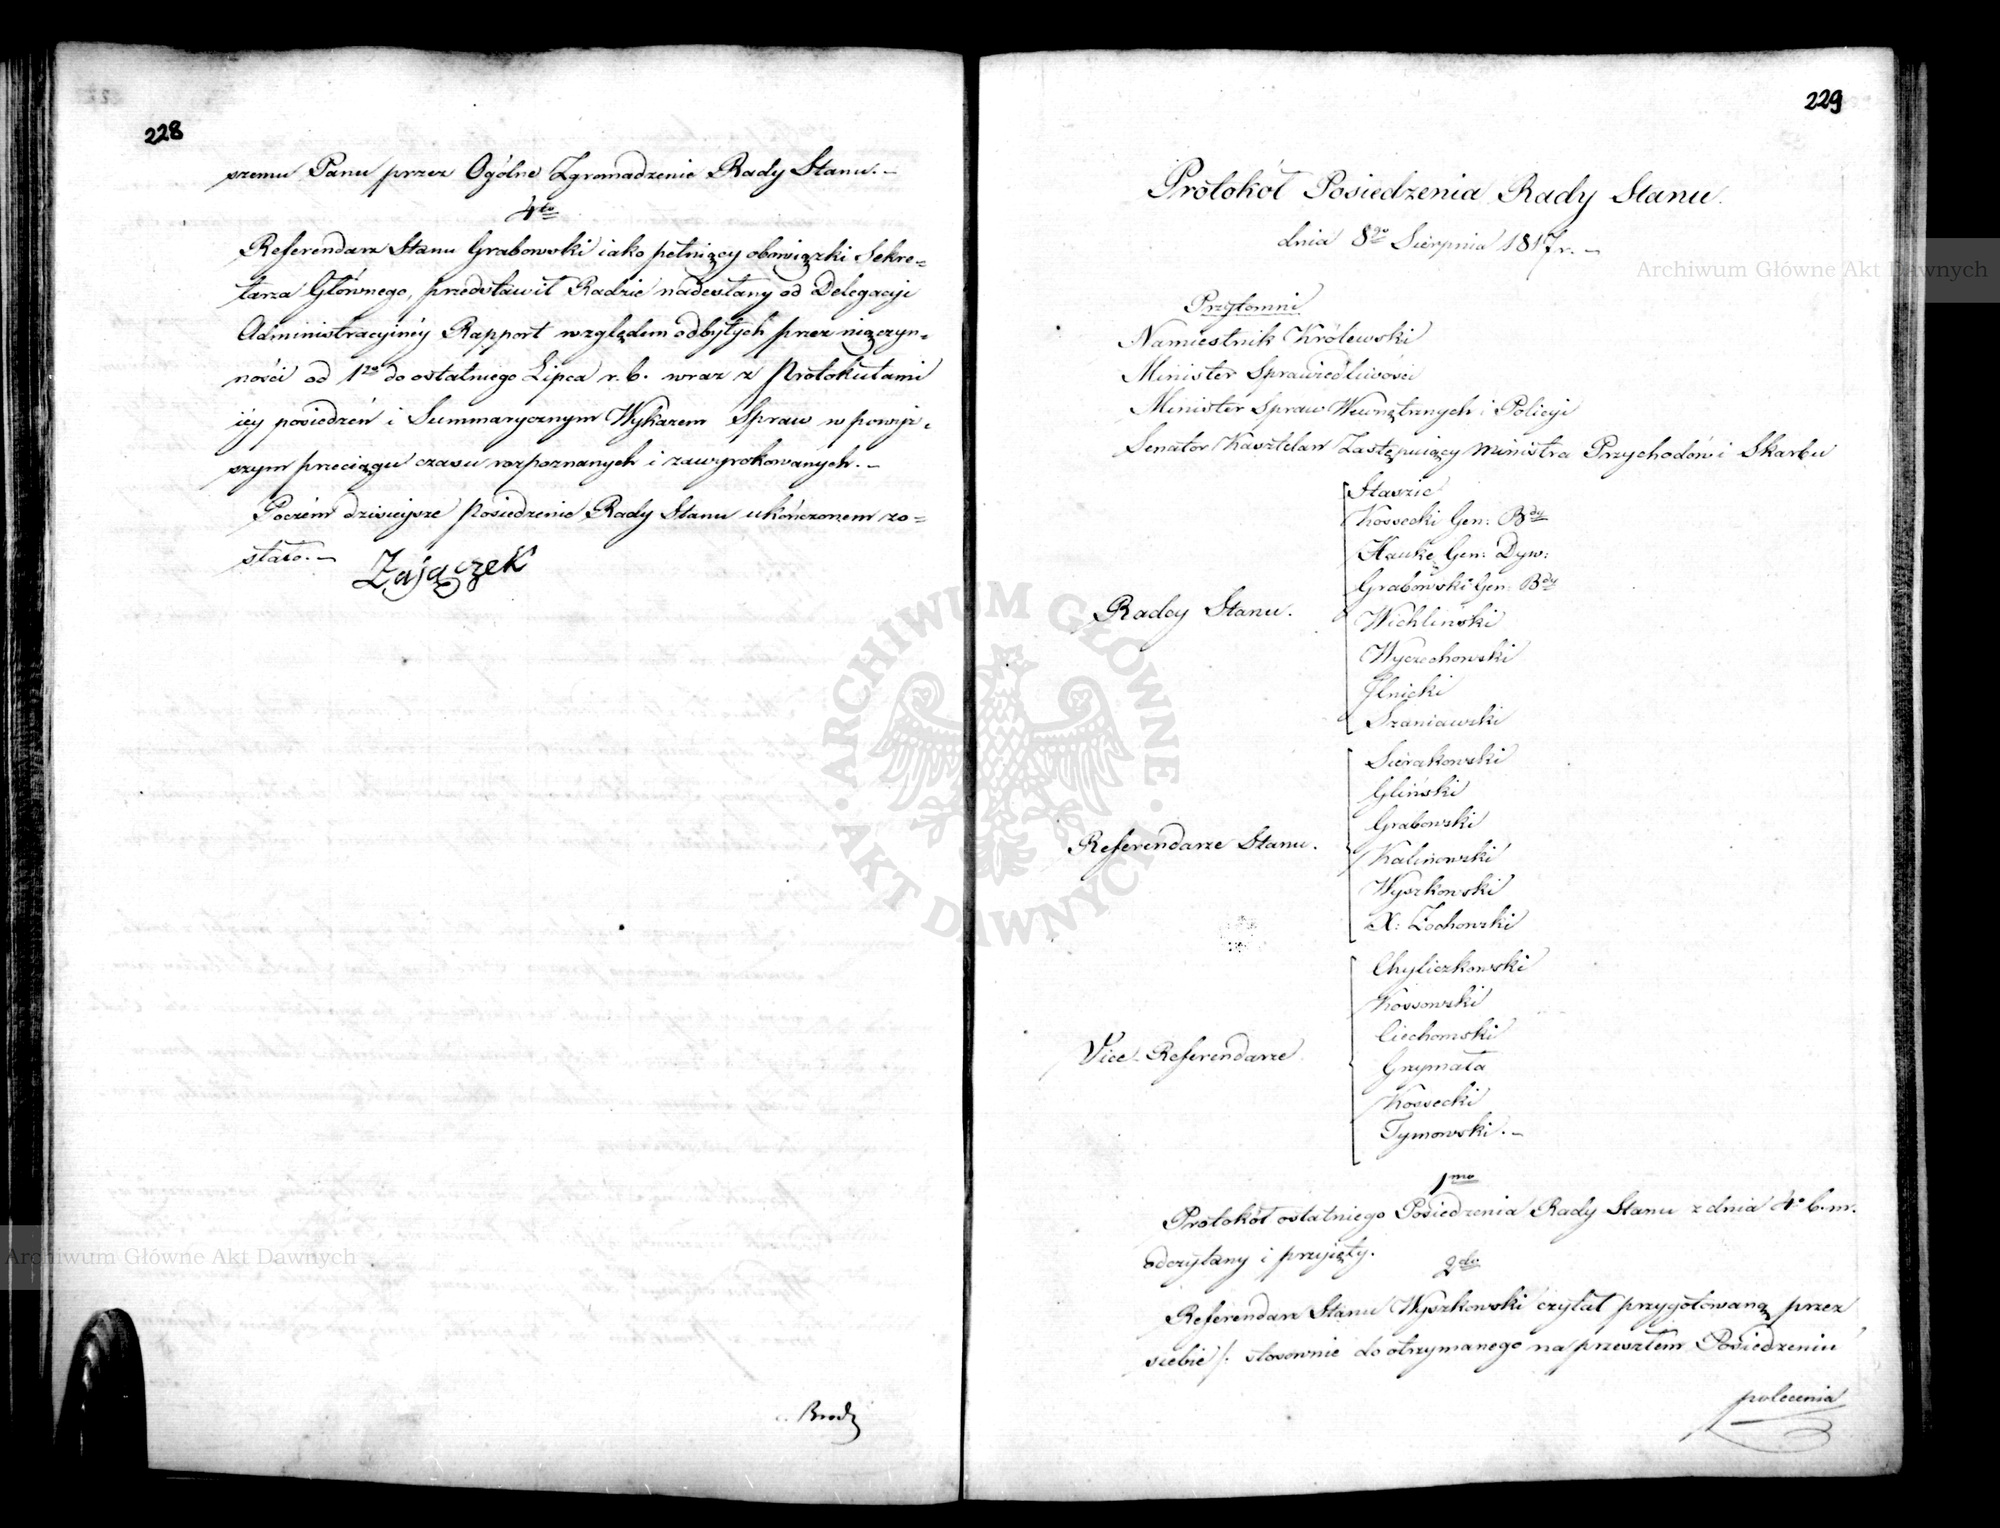 228
szemu Panu przez Ogólne Zgromadzenie Rady Stanu. –
4to
Referendarz Stanu Grabowski iako pełniący obowiązki Sekre=
tarza Głównego, przedstawił Radzie nadesłany od Delegacyi
Administracyinéy Rapport względem odbytych przez nią czyn=
ności od 1go do ostatniego Lipca r. b. wraz z Protokułami
iéy posiedzeń i Summarycznym Wykazem Spraw w powyż=
szym przeciągu czasu rozpoznanych i zawyrokowanych. –
Poczém dzisieysze Posiedzenie Rady Stanu ukończonem zo=
stało. –
Zajączek
Brodz
229
Protokół Posiedzenia Rady Stanu.
dnia 8go Sierpnia 1817 r. –
Przytomni
Namiestnik Królewski
Minister Sprawiedliwości
Minister Spraw Wewnętrznych i Policyi
Senator Kasztelan Zastępuiący Ministra Przychodów i Skarbu
Radcy Stanu.
Staszic
Kossecki Gen: Bdy
Hauke Gen: Dyw:
Grabowski Gen: Bdy
Wichliński
Wyczechowski
Ilnicki
Szaniawski
Referendarze Stanu.
Sierakowski
Gliński
Grabowski
Kalinowski
Wyszkowski
X: Zochowski
Vice-Referendarze.
Chyliczkowski
Kossowski
Ciechomski
Grzymała
Kossecki
Tymowski. –
1mo
Protokół ostatniego Posiedzenia Rady Stanu z dnia 4o b. m.
odczytany i przyięty.
2do
Referendarz Stanu Wyszkowski czytał przygotowaną przez
siebie /: stosownie do otrzymanego na przeszłém Posiedzeniu
polecenia
Archiwum Główne Akt Dawnych
Archiwum Główne Akt Dawnych
ARCHIWUM GŁÓWNE · AKT DAWNYCH ·